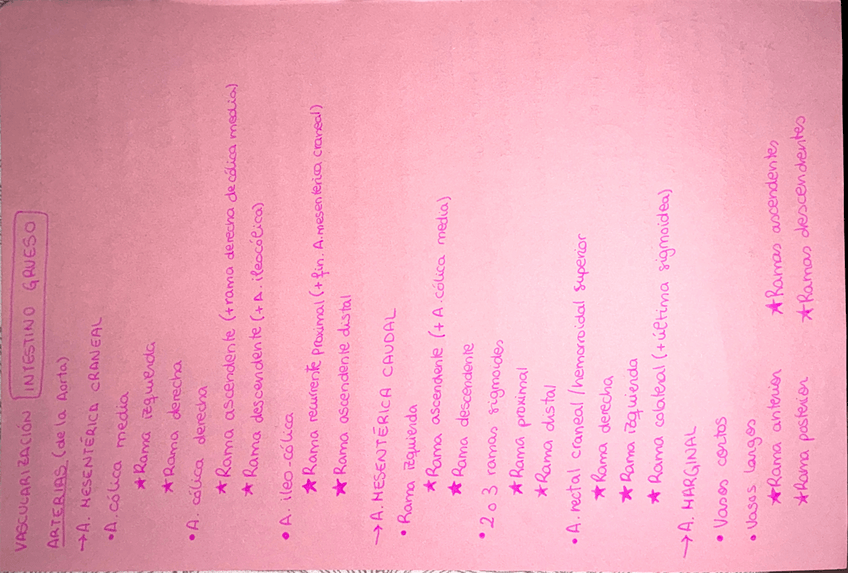 VASCULARIZACIÓN INTESTINO GRUESO
ARTERIAS (de la Aorta)
→ A. MESENTÉRICA CRANEAL
• A. cólica media
★ Rama izquierda
★ Rama derecha
• A. cólica derecha
★ Rama ascendente (+ rama derecha de cólica media)
★ Rama descendente (+ A. ileocólica)
• A. íleo-cólica
★ Rama recurrente proximal (+ fin. A. mesentérica craneal)
★ Rama ascendente distal
→ A. MESENTÉRICA CAUDAL
• Rama izquierda
★ Rama ascendente (+ A. cólica media)
★ Rama descendente
• 2 o 3 ramas sigmoides
★ Rama proximal
★ Rama distal
• A. rectal craneal / hemorroidal superior
★ Rama derecha
★ Rama izquierda
★ Rama colateral (+ última sigmoidea)
→ A. MARGINAL
• Vasos cortos
• Vasos largos
★ Rama anterior ★ Ramas ascendentes
★ Rama posterior ★ Ramas descendientes